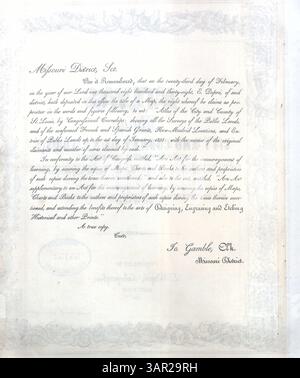 Missouri District, Sct.
Be it Remembered, that on the twenty-third day of February,
in the year of our Lord one thousand eight hundred and thirty-eight, E. Dupre, of said
district, hath deposited in this office the title of a Map, the right whereof he claims as pro-
prietor in the words and figures following, to wit: "Atlas of the City and County of
St. Louis, by Congressional Townships; showing all the Surveys of the Public Lands,
and of the confirmed French and Spanish Grants, New-Madrid Locations, and En-
tries of Public Lands up to the 1st day of January, 1838; with the names of the original
claimants and number of acres claimed by each."
In conformity to the Act of Congress entitled, "An Act for the encouragement of
learning, by securing the copies of Maps, Charts and Books to the authors and proprietors
of such copies during the time therein mentioned; and also to the act entitled, "An Act
supplementary to an Act for the encouragement of learning, by securing the copies of Maps,
Charts and Books to the authors and proprietors of such copies during the times therein men-
tioned, and extending the benefits thereof to the arts of Designing, Engraving and Etching
Historical and other Prints."
A true copy.
Test,
Jo. Gamble, Clk.
Missouri District.
alamy
Image ID: 3AR29RH
www.alamy.com